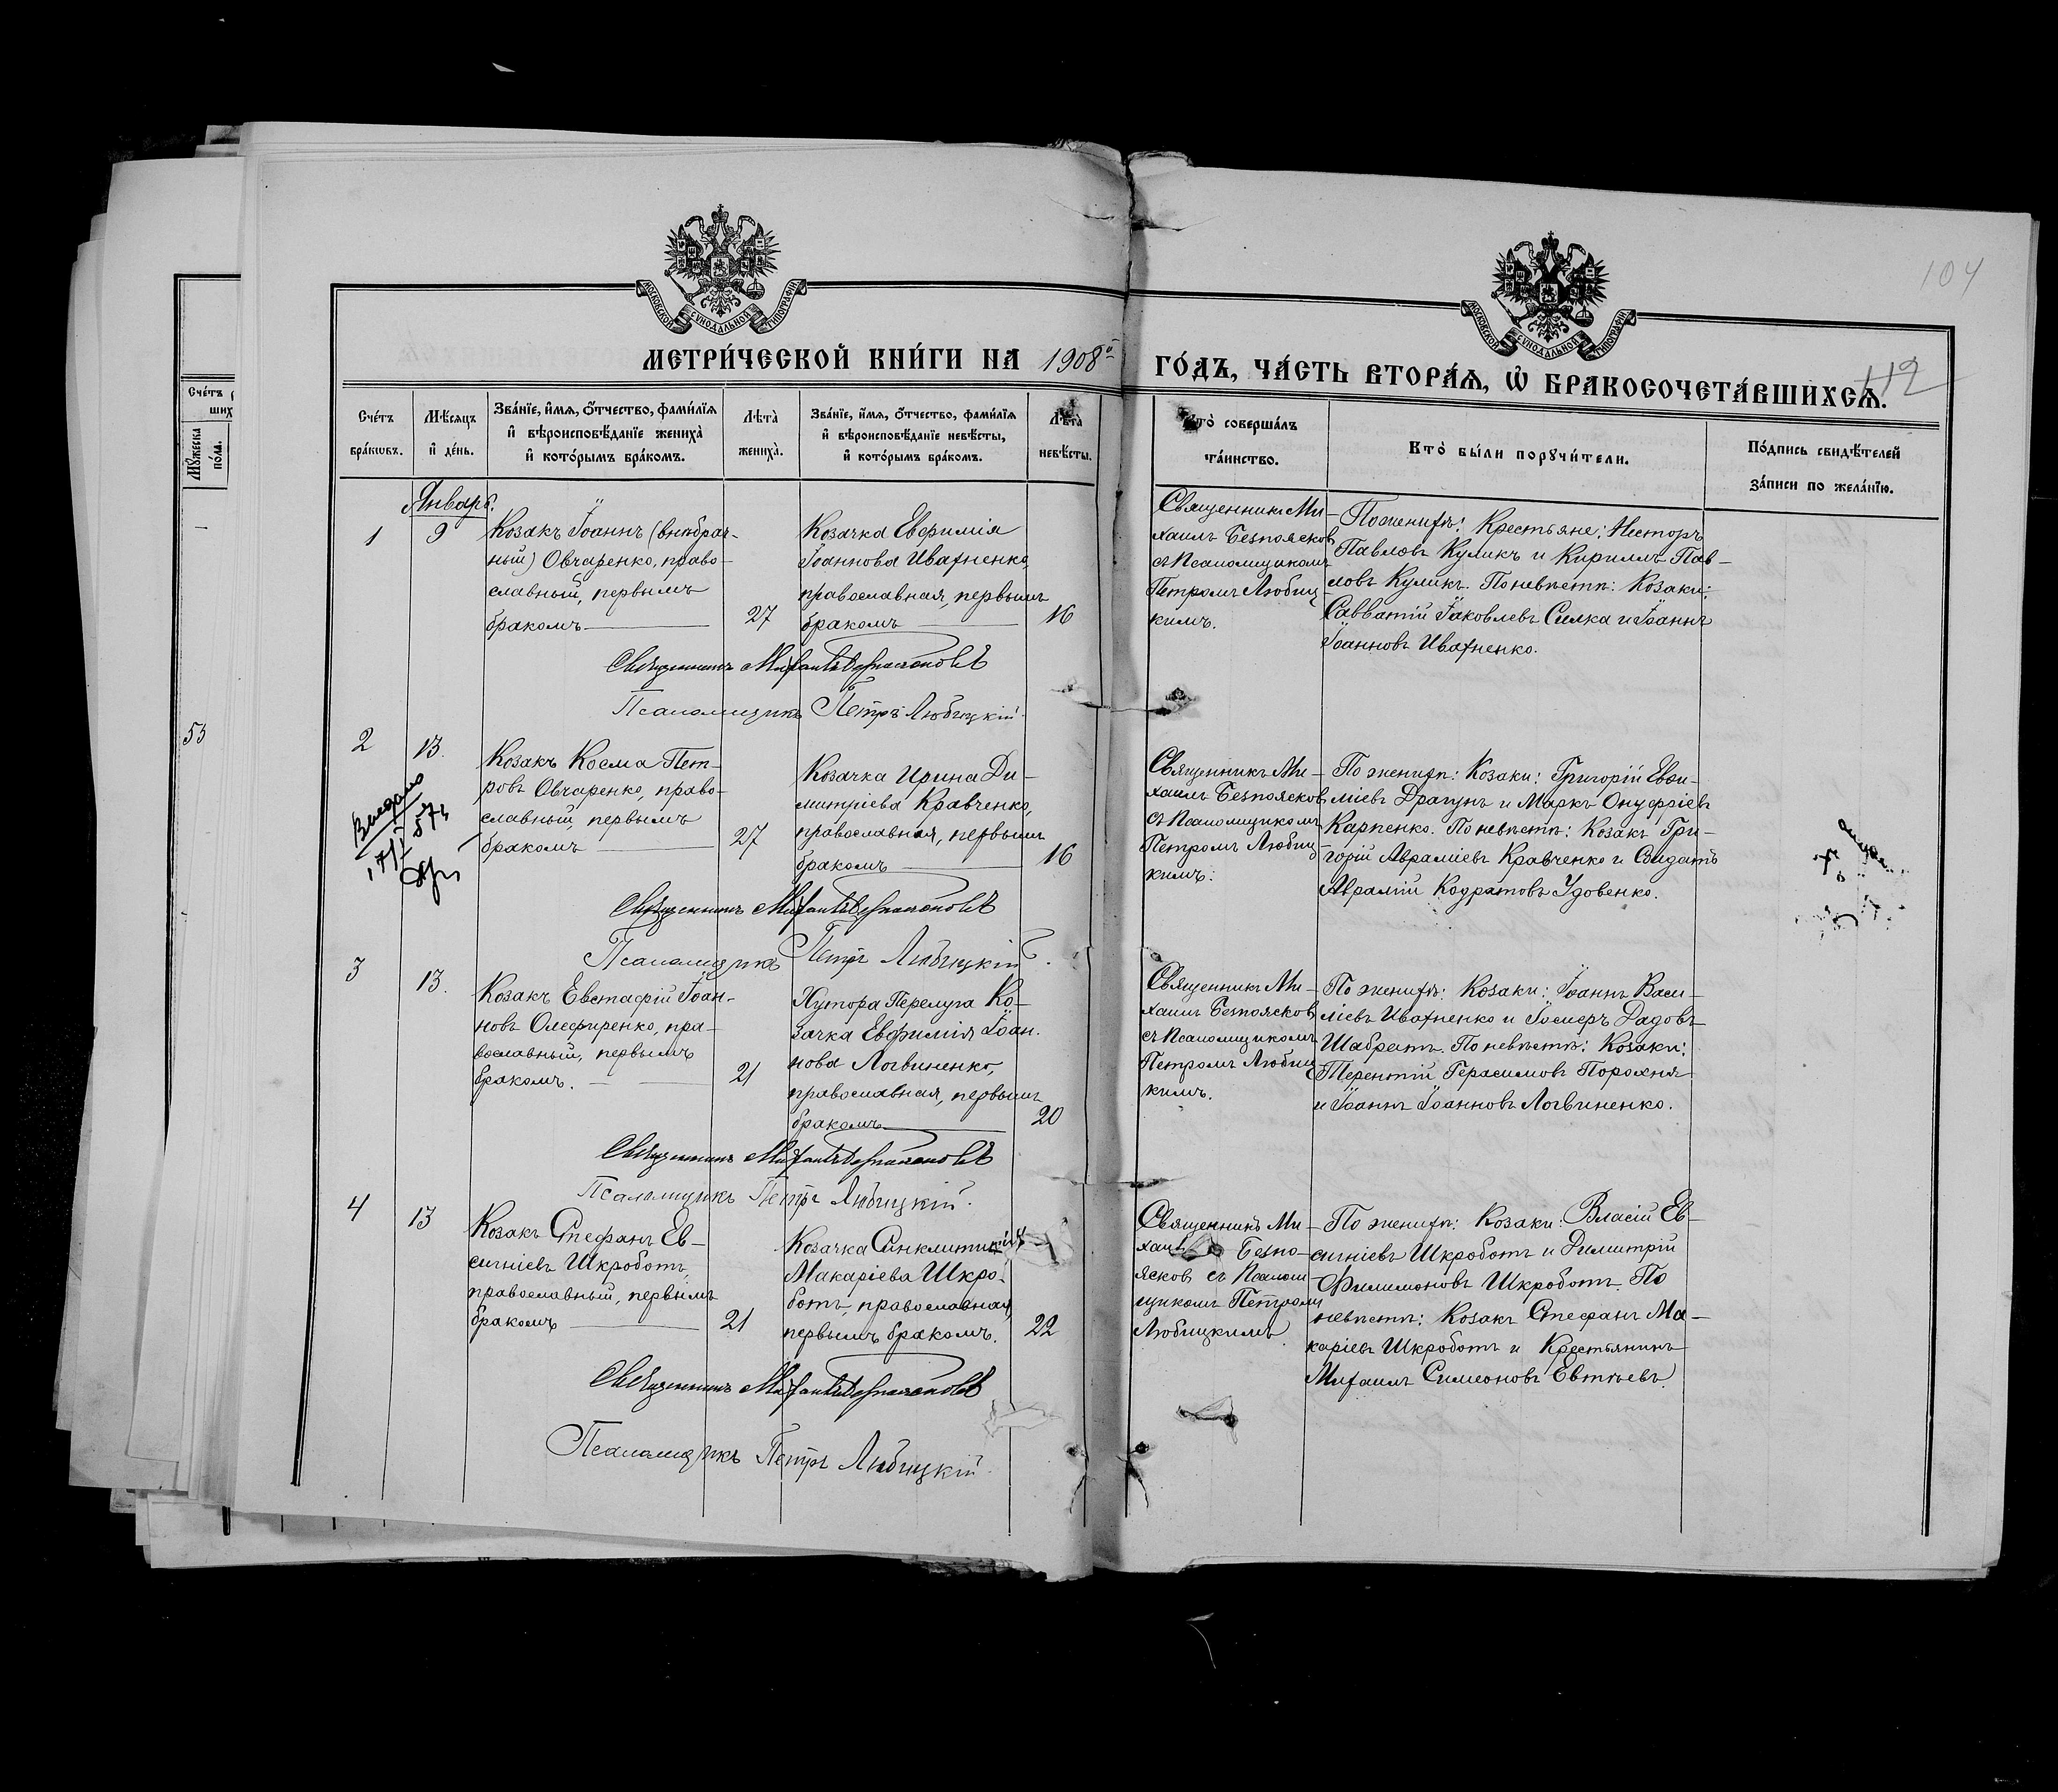 МОСКОВСКОЙ СѴНОДАЛЬНОЙ ТИПОГРАФІИ
МОСКОВСКОЙ СѴНОДАЛЬНОЙ ТИПОГРАФІИ
104
МЕТРИ́ЧЕСКОЙ КНИ́ГИ НА 1908й
ГО́ДЪ, ЧА́СТЬ ВТОРА́Ѧ, Ѡ БРАКОСОЧЕТА́ВШИХСѦ.
112
Сче́тъ
ших
Мꙋжеска
по́ла.
53
Сче́тъ
бра́кѡвъ.
Мѣ́сѧцъ
и҆ де́нь.
Зва́нїе, и҆́мѧ, ѻ҆́тчество, фами́лїѧ
и҆ вѣроисповѣ́данїе жениха̀
и҆ кото́рымъ бра́комъ.
Лѣ́та
жениха̀.
Зва́нїе, и҆́мѧ, ѻ҆́тчество, фами́лїѧ
и҆ вѣроисповѣ́данїе невѣ́сты,
и҆ кото́рымъ бра́комъ.
Лѣ́та
невѣ́сты.
Кто̀ соверша́лъ
та́инство.
Кто̀ бы́ли порꙋчи́тели.
По́дпись свидѣ́телей
за́писи по жела́нїю.
Январь.
1
9
Козакъ Іоаннъ (внѣбрач-
ный) Овчаренко, право-
славный, первымъ
бракомъ
27
Козачка Евфимія
Іоаннова Ивахненко,
православная, первымъ
бракомъ
16
Священникъ Ми-
хаилъ Безпоясковъ
съ Псаломщикомъ
Петромъ Любиц-
кимъ.
По женихѣ: Крестьяне: Несторъ
Павловъ Куликъ и Кириллъ Пав-
ловъ Куликъ. По невѣстѣ: Козаки:
Савватій Іаковлевъ Силка и Іоаннъ
Іоанновъ Ивахненко.
Священникъ Михаилъ Безпоясковъ
Псаломщикъ Петръ Любицкій.
2
13.
Козакъ Косма Пет-
ровъ Овчаренко, право-
славный, первымъ
бракомъ
27
Козачка Ирина Ди-
митріева Кравченко,
православная, первымъ
бракомъ
16
Священникъ Ми-
хаилъ Безпоясковъ
съ Псаломщикомъ
Петромъ Любиц-
кимъ.
По женихѣ: Козаки: Григорій Евѳи-
міевъ Драгунъ и Маркъ Онуфріевъ
Карпенко. По невѣстѣ: Козакъ Гри-
горій Авраміевъ Кравченко и Солдатъ
Аврамій Кодратовъ Удовенко.
Священникъ Михаилъ Безпоясковъ
Псаломщикъ Петръ Любицкій.
3
13.
Козакъ Евстафій Іоан-
новъ Олефиренко, пра-
вославный, первымъ
бракомъ.
21
Хутора Перелуга Ко-
зачка Евфимія Іоан-
нова Логвиненко,
православная, первымъ
бракомъ
20
Священникъ Ми-
хаилъ Безпоясковъ
съ Псаломщикомъ
Петромъ Любиц-
кимъ.
По женихѣ: Козаки: Іоаннъ Васи-
ліевъ Ивахненко и
Шабратъ. По невѣстѣ: Козаки:
Терентій Герасимовъ Порохня
и Іоаннъ Іоанновъ Логвиненко.
Священникъ Михаилъ Безпоясковъ
Псаломщикъ Петръ Любицкій.
4
13
Козакъ Стефанъ Ев-
сигніевъ Шкроботъ,
православный, первымъ
бракомъ
21
Козачка Синклитикія
Макаріева Шкро-
ботъ, православная,
первымъ бракомъ.
22
Священникъ Ми-
хаилъ Безпо-
ясковъ съ Псалом-
щикомъ Петромъ
Любицкимъ
По женихѣ: Козаки: Власій Ев-
сигніевъ Шкроботъ и Димитрій
Филимоновъ Шкроботъ. По
невѣстѣ: Козакъ Стефанъ Ма-
каріевъ Шкроботъ и Крестьянинъ
Михаилъ Симеоновъ Евтѣевъ.
Священникъ Михаилъ Безпоясковъ
Псаломщикъ Петръ Любицкій.